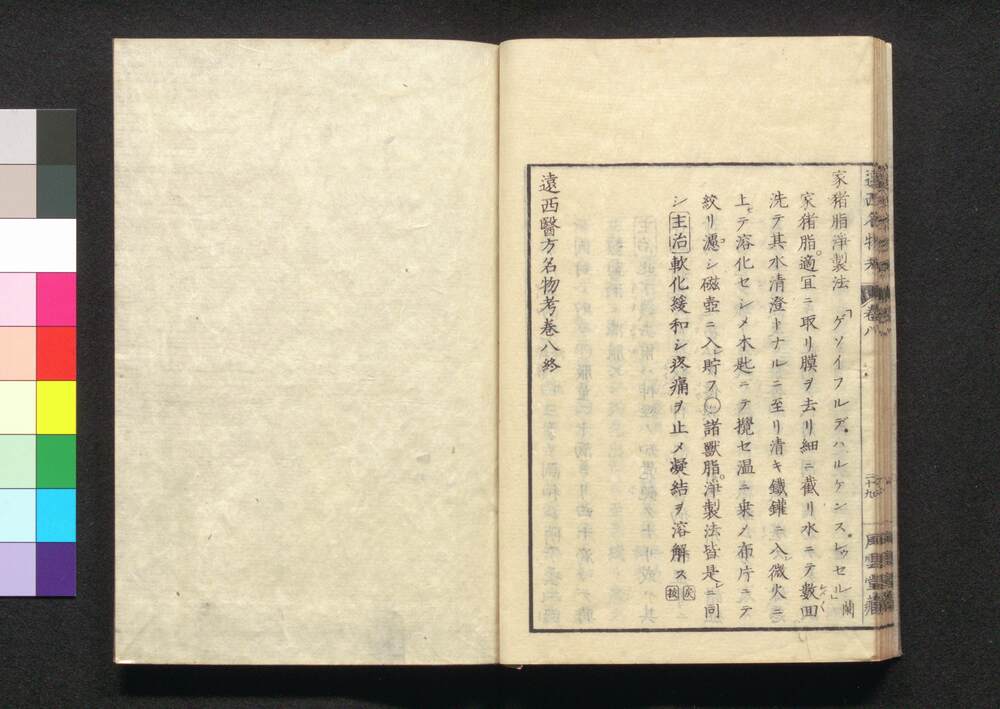 遠西名物考 卷八 二十九 風雲堂藏
家猪脂淨製法 「ゲソイフルデ、ハルケンスレウセル」蘭
家猪脂適宜ニ取リ膜ヲ去リ細ニ截リ水ニテ數回
洗テ其水清澄トナルニ至リ清キ鐵鑵ニ入微火ニ
上セテ溶化セシメ木匙ニテ攪セ温ニ乗メ布片ニテ
絞リ濾シ磁壺ニ入貯フ〇諸獸脂淨製法皆是ニ同
シ主治軟化緩和シ疼痛ヲ止メ凝結ヲ溶解ス
遠西醫方名物考卷八終